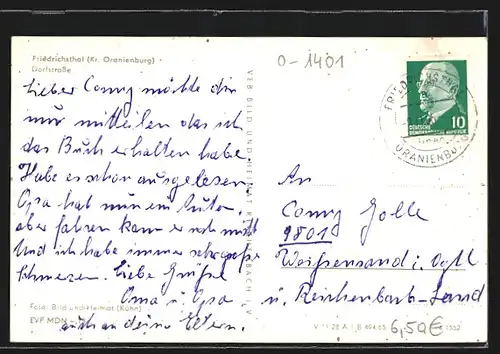 Friedrichsthal (Kr. Oranienburg)
Dorfstraße
0-1401
Lieber Conny möchte dir
nur mitteilen das ich
das Buch erhalten habe
Habe es schon ausgelesen
Opa hat nun ein Auto,
aber fahren kann er noch nicht
Und ich habe immer
Schmerzen. Liebe Grüße
Oma u. Opa
auch an deine Eltern.
Foto: Bild und Heimat (Kühn)
EVP MDN
VEB BILD UND HEIMAT REICHENBACH I. V.
10
DEUTSCHE
DEMOKRATISCHE REPUBLIK
ORANIENBURG
An
Conny Jolle
9801
Weißensand i. Vgtl
ü. Reichenbach-Land
V 11 28 A 1 B 494 65
6,50€